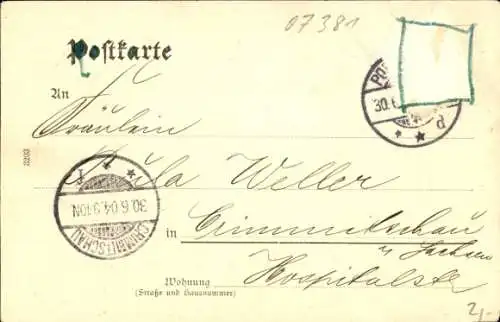 07381
Postkarte
An
Fräulein
Weller
in Crimmitschau
Sachsen
Wohnung
Hospitalstr
(Straße und Hausnummer)
30.6.04.9-10N.
CRIMMITSCHAU
30.6
3203
2,-